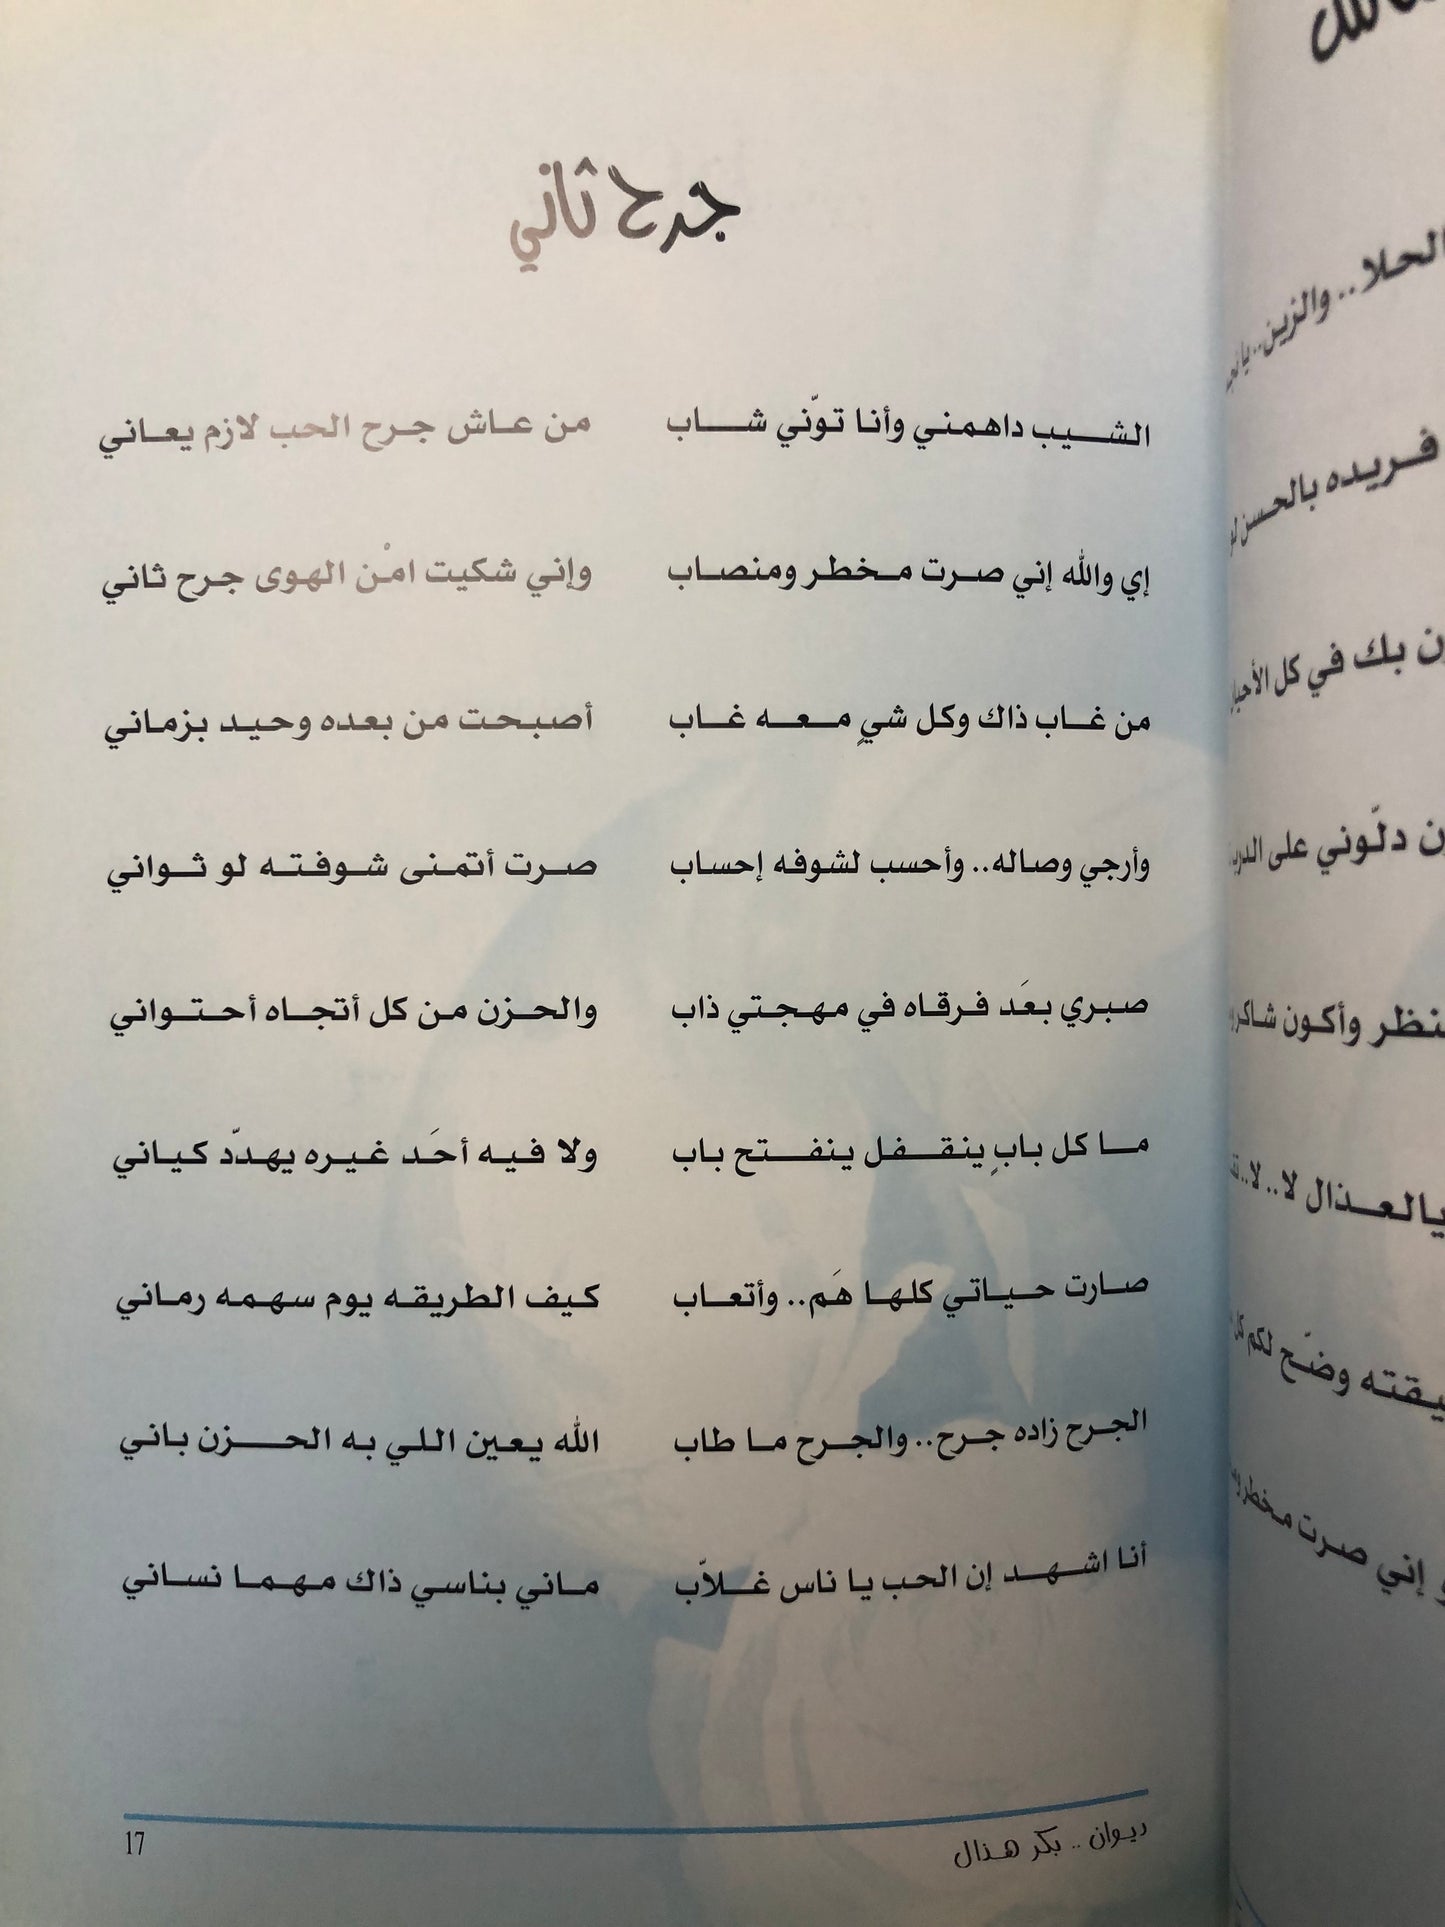 جرح ثاني
الشيب داهمني وأنا توّني شاب من عاش جرح الحب لازم يعاني
إي والله إني صرت مخطر ومنصاب وإني شكيت امْن الهوى جرح ثاني
من غاب ذاك وكل شيٍ معه غاب أصبحت من بعده وحيد بزماني
وأرجي وصاله.. وأحسب لشوفه إحساب صرت أتمنى شوفته لو ثواني
صبري بعَد فرقاه في مهجتي ذاب والحزن من كل أتجاه أحتواني
ما كل بابٍ ينقفل ينفتح باب ولا فيه أحَد غيره يهدّد كياني
صارت حياتي كلها هَم.. وأتعاب كيف الطريقه يوم سهمه رماني
الجرح زاده جرح.. والجرح ما طاب الله يعين اللي به الحزن باني
أنا اشهد إن الحب يا ناس غلاّب ماني بناسي ذاك مهما نساني
ديوان .. بكر هذال
17
الحلا.. والزين..
فريده بالحسن
بك في كل
دلّوني على
وأكون
يالعذال لا.. لا..
وضّح لكم
إني صرت مخطر